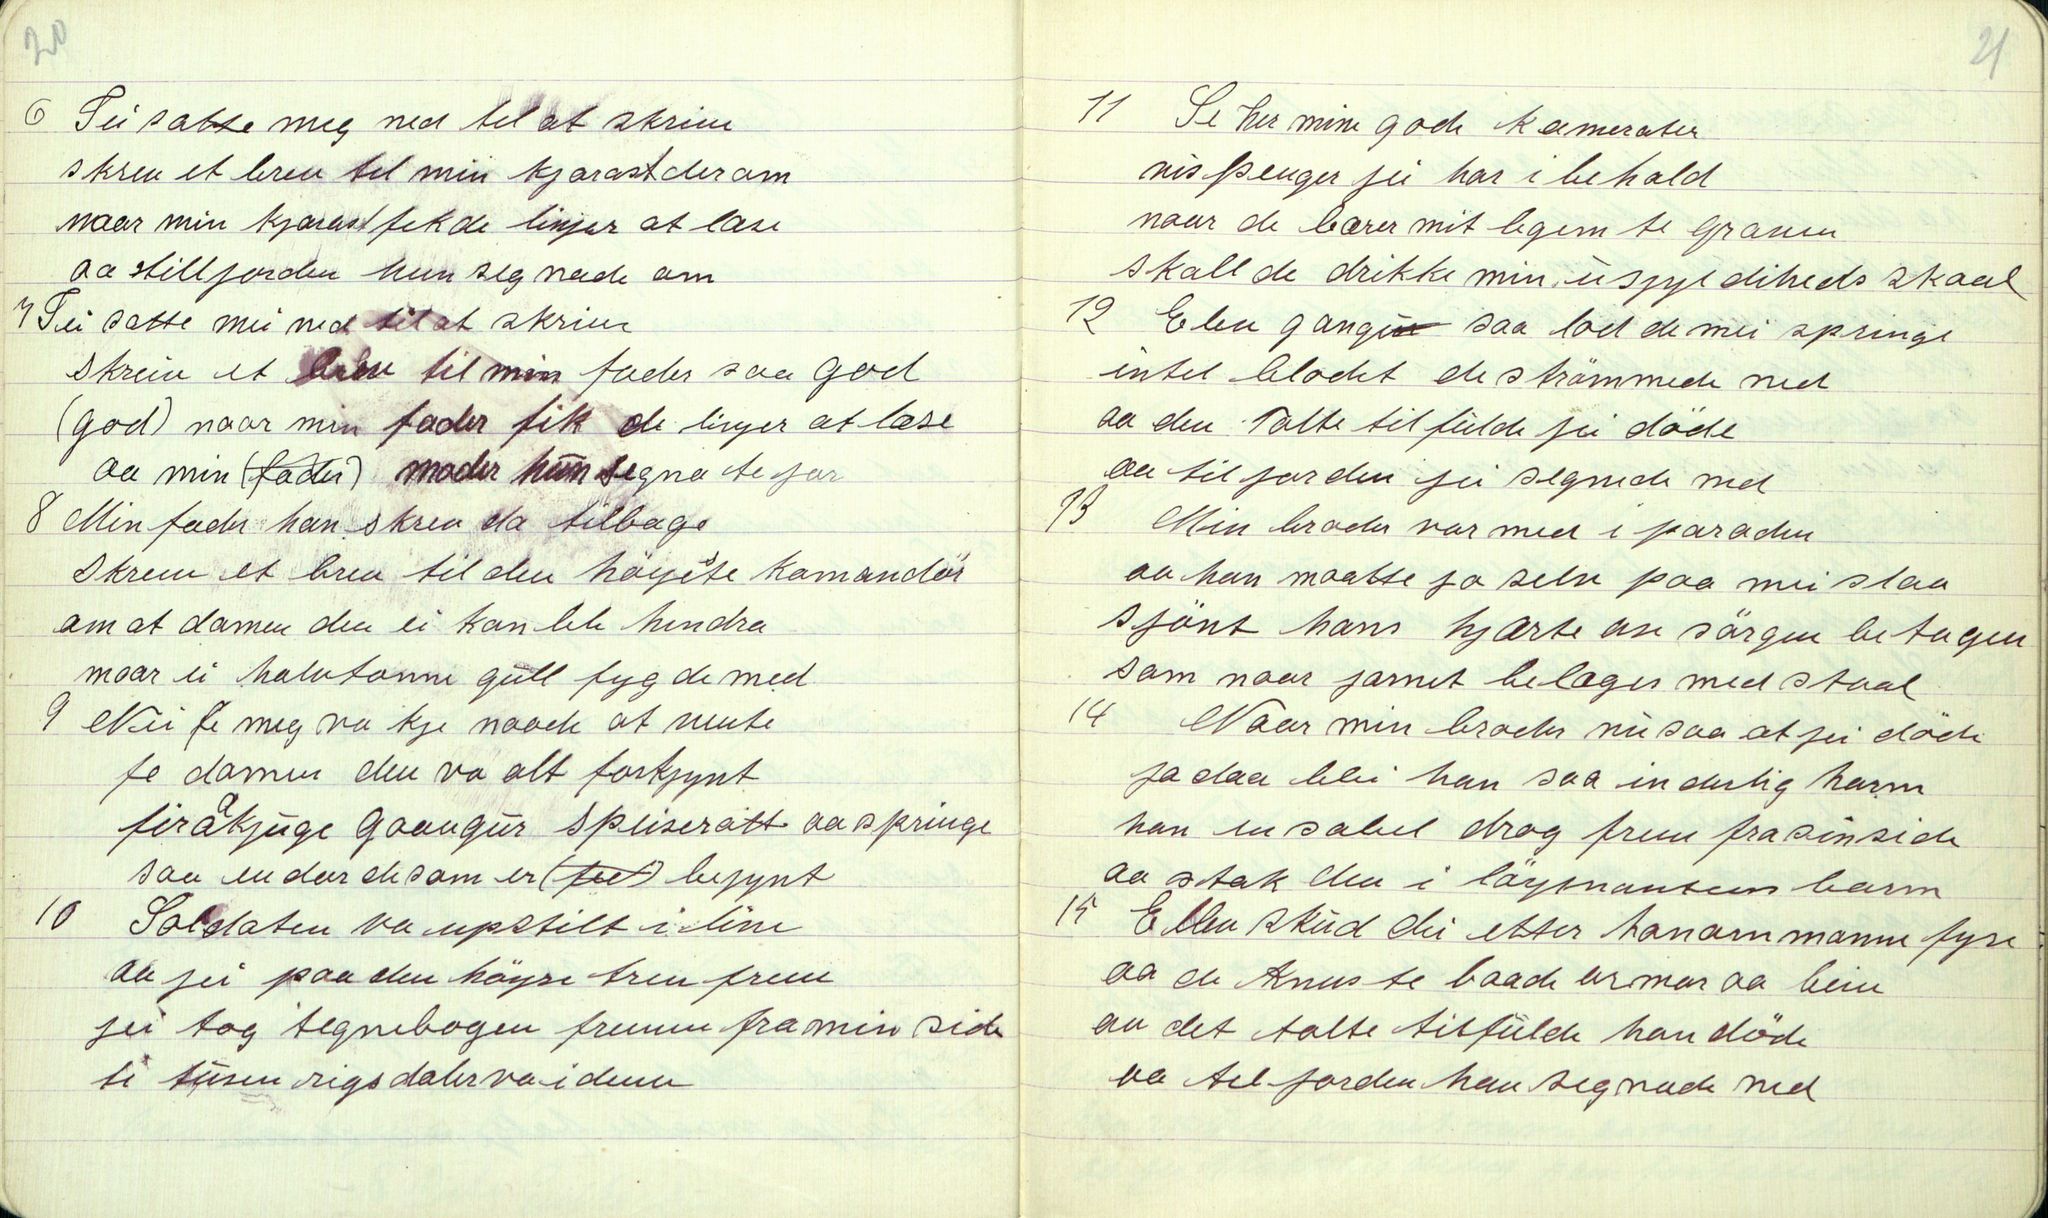 20
6 Jei satte meg ned til at skrive
skrev et brev til min kjarast derom
naar min kjarast fek de linjer at læse
aa till jorden hun segnade om
7 Jei satte mei ned til at skrive
skreiv et brev til min fader saa god
(god) naar min fader fik de linjer at læse
aa min (fader) moder hun segna te jor
8 Min fader han skrev da tilbage
skrev et brev til den höyste komandör
om at domen den ei kan bli hindra
naar ei halvtonne gull fygde med
9 Nei fe meg va kje naade at vente
fe domen den va alt forkjynt
firåkjuge gaangur speiseratt aa springe
saa endar de som er (fed) begynt
10 Soldaten va upstilt i line
aa jei paa den höyre tren frem
jei tog tegnebogen fremm fra min side
ti tusen rigsdaler va i denn
21
11 Se her mine gode kamerater
vis penger jei har i behold
naar de bærer mit legem te graven
skall de drikke min usjyldiheds skaal
12 Elev gangur saa lod de mei springe
intel blodet de strömmede ned
aa den Tolte til fulde jei döde
aa til jorden jei segnede ned
13 Min broder var med i paraden
aa han maatte jo selv paa mei slaa
sjönt hans hjærte av sörgen betagen
som naar jarnet belæges med staal
14 Naar min broder nu saa at jei döde
ja daa blei han saa inderlig harm
han en sabel drog frem fra sin side
aa stak den i löysnantens barm
15 Ellev skud dei etter honom monne fyre
aa de knuste baade armar aa bein
aa det tolte tilfulde han döde
aa til jorden han segnade ned